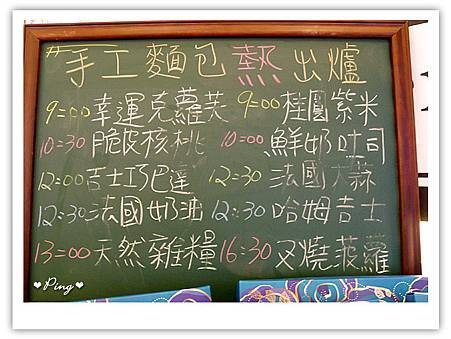 #手工麵包熱出爐
9:00幸運克蘿芙 9:00桂圓紫米
10:30脆皮核桃 10:00鮮奶吐司
12:00吉士巧巴達 12:30法國大蒜
12:30法國奶油 12:30哈姆吉士
13:00天然雜糧 16:30叉燒菠蘿
♥Ping♥